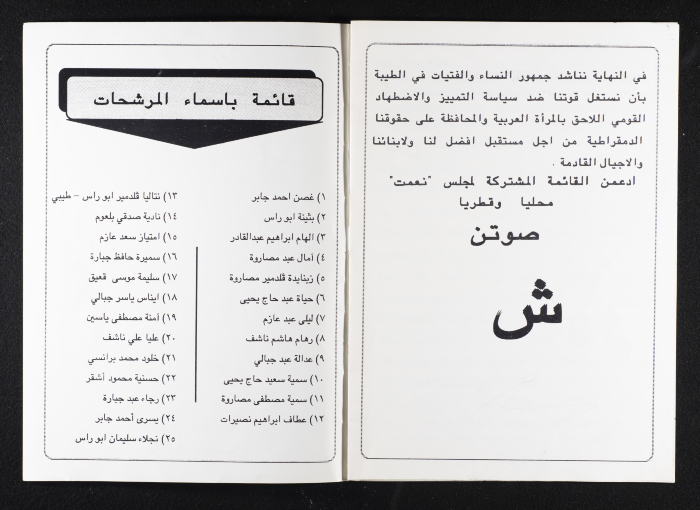 في النهاية نناشد جمهور النساء والفتيات في الطيبة
بأن نستغل قوتنا ضد سياسة التمييز والاضطهاد
القومي اللاحق بالمرأة العربية والمحافظة على حقوقنا
الدمقراطية من اجل مستقبل افضل لنا ولابنائنا
والاجيال القادمة .
ادعمن القائمة المشتركة لمجلس "نعمت"
محليا وقطريا
صوتن
ش
قائمة باسماء المرشحات
١) غصن احمد جابر
٢) بثينة ابو راس
٣) الهام ابراهيم عبدالقادر
٤) آمال عبد مصاروة
٥) زينايدة قلدمير مصاروة
٦) حياة عبد حاج يحيى
٧) ليلى عبد عازم
٨) رهام هاشم ناشف
٩) عدالة عبد جبالي
١٠) سمية سعيد حاج يحيى
١١) سمية مصطفى مصاروة
١٢) عطاف ابراهيم نصيرات
١٣) نتاليا قلدمير ابو راس - طيبي
١٤) نادية صدقي بلعوم
١٥) امتياز سعد عازم
١٦) سميرة حافظ جبارة
١٧) سليمة موسى قعيق
١٨) ايناس ياسر جبالي
١٩) آمنة مصطفى ياسين
٢٠) عليا علي ناشف
٢١) خلود محمد برانسي
٢٢) حسنية محمود أشقر
٢٣) رجاء عبد جبارة
٢٤) يسرى أحمد جابر
٢٥) نجلاء سليمان ابو راس